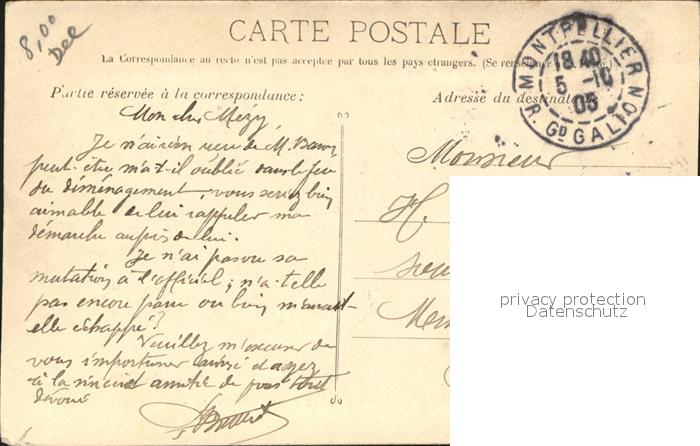 8,00
Dec
CARTE POSTALE
La Correspondance au recto n'est pas acceptée par tous les pays étrangers. (Se renseigner à la Poste.)
Partie réservée à la correspondance :
Adresse du destinataire
MONTPELLIER
18 40
5 -10
05
R. GD GALION
Mon cher Mézy,
Je n'ai rien reçu de M.
peut-être m'a-t-il oublié dans le feu
du déménagement, vous seriez bien
aimable de lui rappeler ma
démarche auprès de lui.
Je n'ai pas vu sa
mutation à l'officiel ; n'a-t-elle
pas encore paru ou bien m'aurait-
elle échappé ?
Veuillez m'excuser de
vous importuner ainsi et croyez
à la sincère amitié de votre tout
dévoué
Monsieur
H.
privacy protection
Datenschutz